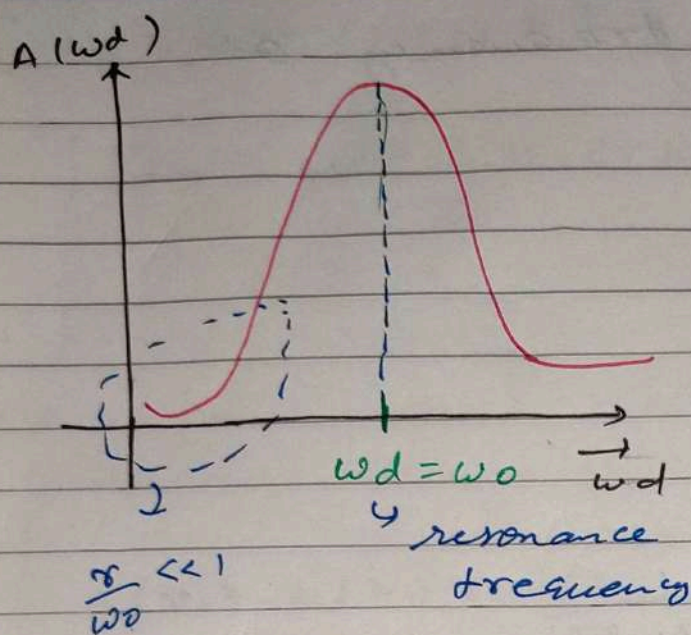 A (ωd)
ωd = ωo
ωd
↳ resonance
frequency
γ/ωo << 1